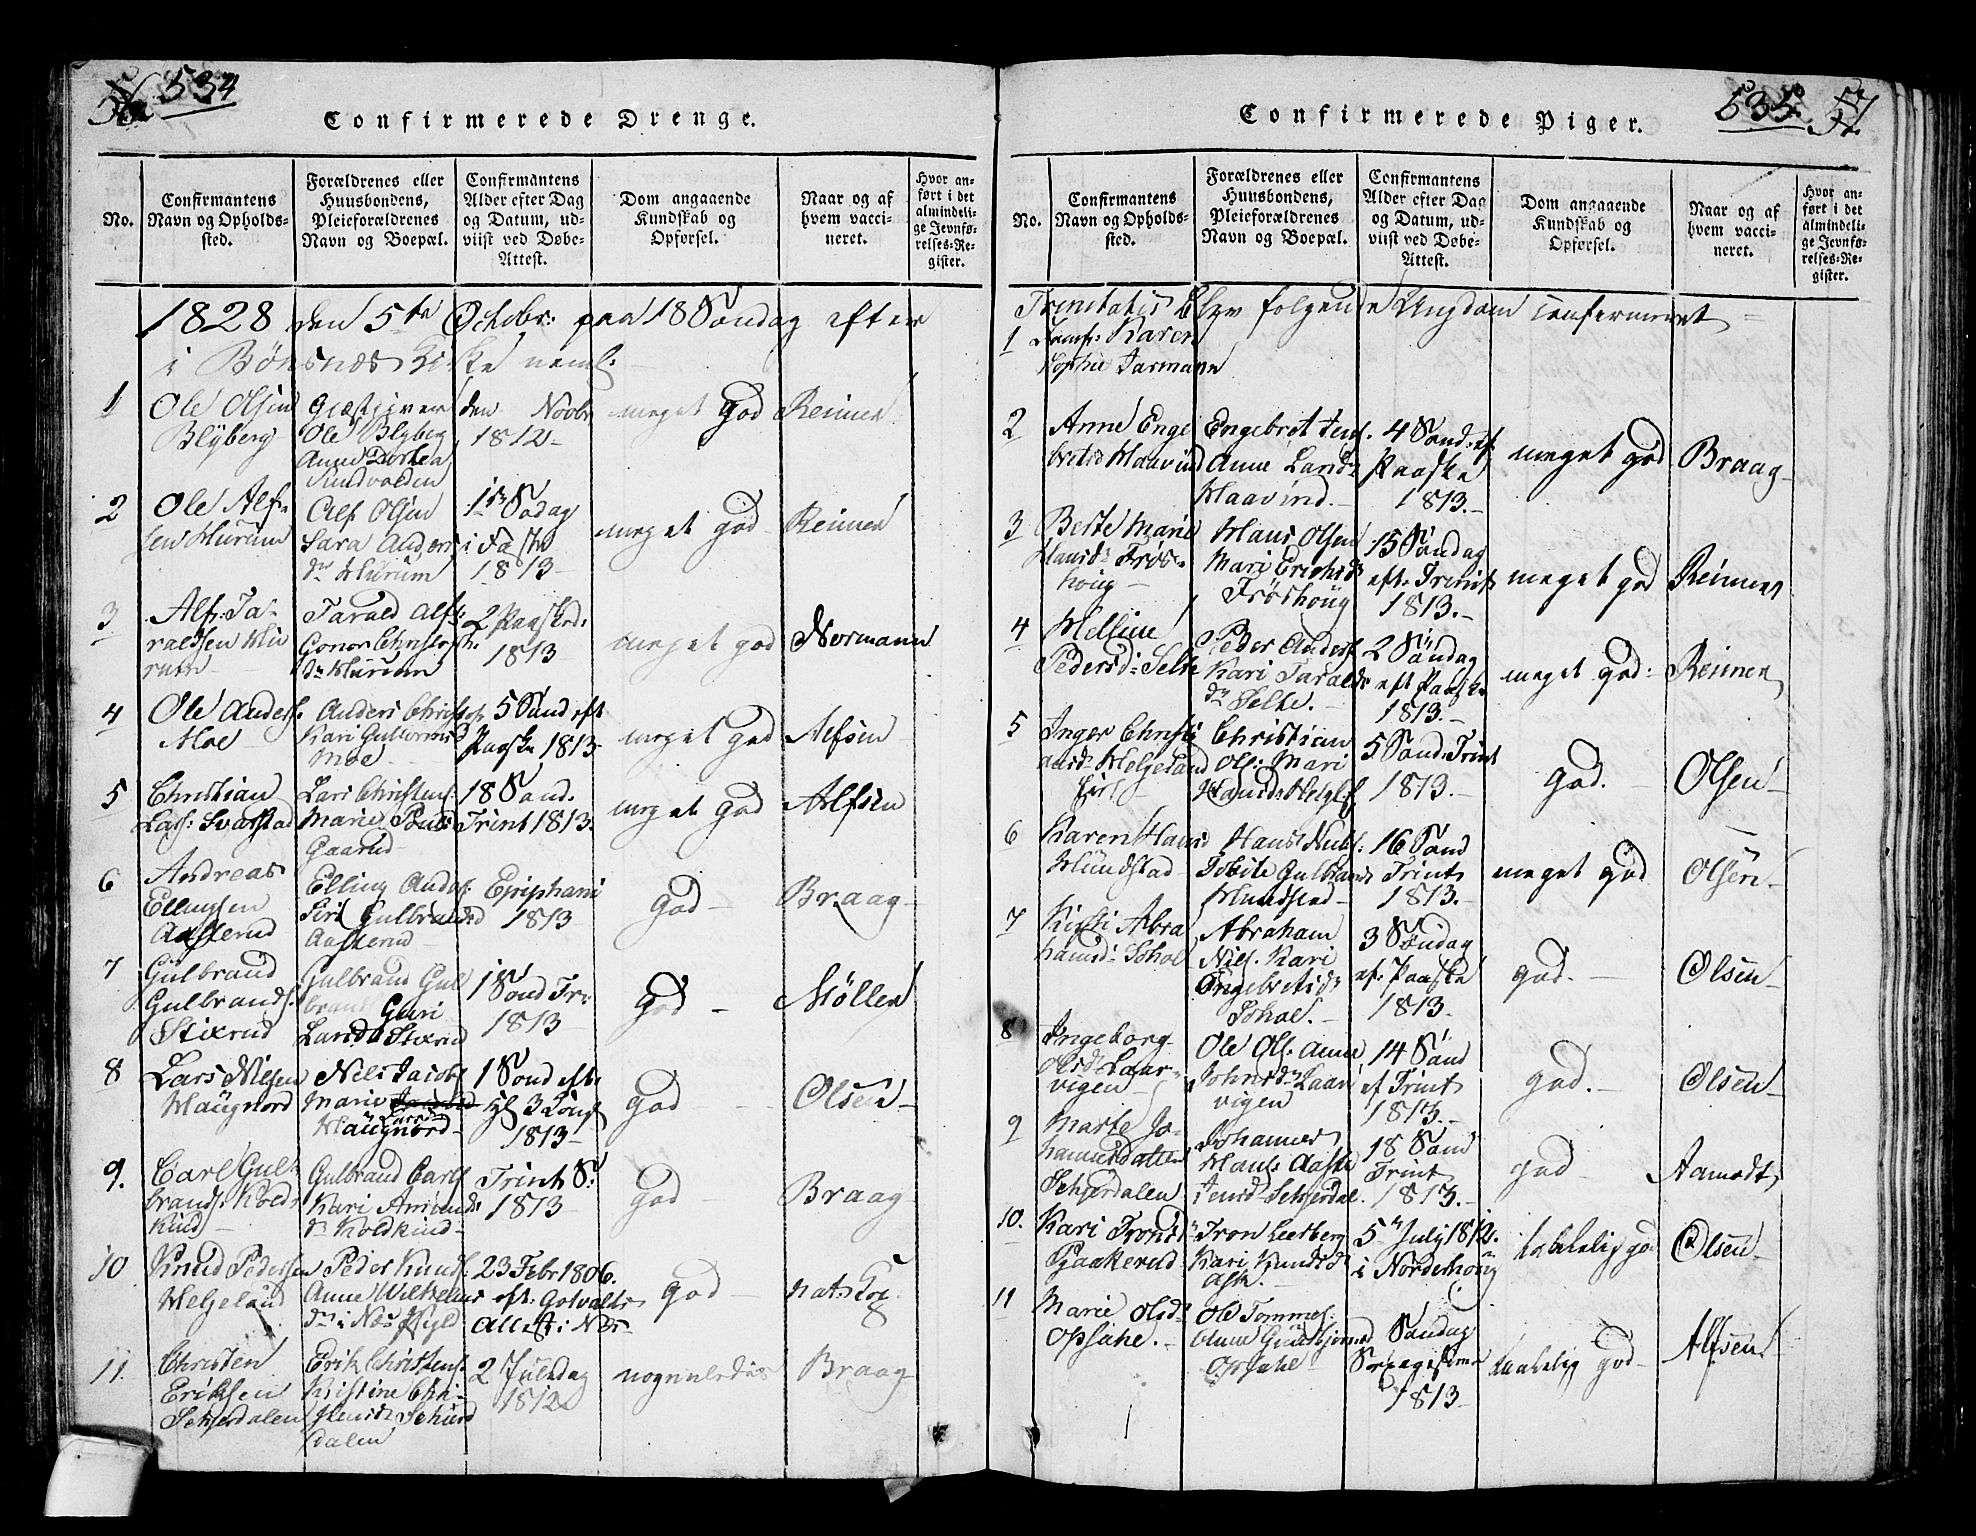 534
Confirmerede Drenge.
No.
Confirmantens
Navn og Opholds-
sted.
Forældrenes eller
Huusbondens,
Pleieforældrenes
Navn og Boepæl.
Confirmantens
Alder efter Dag
og Datum, ud-
viist ved Døbe-
Attest.
Dom angaaende
Kundskab og
Opførsel.
Naar og af
hvem vacci-
neret.
Hvor an-
ført i det
almindeli-
ge Jevnfø-
relses-Re-
gister.
1828 den 5te Octobr: paa 18 Søndag efter
i Bønsnæs Kirke neml:
1
Ole Olsen
Blyberg
Gjæstgiver
Ole Blyberg
Anne Dorthea
Sundvolden
den Novbr
1812
meget god
Reimer
2
Ole Alf-
sen Hurum
Alf Olsen
Sara Anders
dr Hurum
1 Sødag
i Faste
1813
meget god
Reimer
3
Alf Ta-
raldsen Hu
rum
Tarald Alfs:
Gonor Christofs
dr Hurum
2 Paasked:
1813
meget god
Normann
4
Ole Anders:
Moe
Anders Christof
Kari Gulbrands
Moe
5 Sønd eft
Paaske 1813
meget god
Alfsen
5
Christian
Lars: Svarstad
Lars Christens:
Marie Pouls
Gaarud
18 Sønd.
Trint 1813.
meget god
Alfsen
6
Andreas
Ellingsen
Aasterud
Elling Anders:
Siri Gulbrandsd
Aasterud
Epiphani
1813
God
Braag
7
Gulbrand
Gulbrands:
Stixrud
Gulbrand Gul
brands Guri
Larsd Stixrud
1 Sønd Tr:
1813
God
Møller
8
Lars Nilsen
Haugnord
Nels Jacobs
Marie
Haugnord
1 Sønd eft
Hl 3 Kong
1813
God
Olsen
9.
Carl Gul-
brands: Kold-
kind
Gulbrand Carls
Kari Amunds
dr Koldkind
Trint S:
1813
God
Braag
10
Knud Pedersen
Helgeland
Peder Knuds:
Anne Wilhelms
dr i Næs Pgld
23 Febr 1806.
eft. Gotvalts
Attest i Næs
God
nat: Kop.
11.
Christen
Eriksen
Sehjerdalen
Erik Christens:
Kristine Chri-
stensd Sehierd
dalen
2 Juledag
1812
nogenledes
Braag
535
57
Confirmerede Piger.
No.
Confirmantens
Navn og Opholds-
sted.
Forældrenes eller
Huusbondens,
Pleieforældrenes
Navn og Boepæl.
Confirmantens
Alder efter Dag
og Datum, ud-
viist ved Døbe-
Attest.
Dom angaaende
Kundskab og
Opførsel.
Naar og af
hvem vacci-
neret.
Hvor an-
ført i det
almindeli-
ge Jevnfø-
relses-Re-
gister.
Trinitatis blev følgende Ungdom confirmeret
1
Jomfr: Karen
Sophie Jarmann
2
Anne Enge
bretsd Haavind
Engebret Jens:
Anne Larsd
Haavind
4 Sønd: ef
Paaske
1813.
meget god
Braag
3
Berte Marie
Hansdr Frøs-
houg
Hans Olsen
Mari Erichsd
Frøshoug
15 Søndag
eft. Trinit
1813.
meget god
Reimer
4
Helline
Pedersd: Selte
Peder Anders
Kari Taralds
dr Selte.
2 Søndag
eft Paaske
1813.
meget god
Reimer
5
Inger Christi
ansd: Helgeland
Christian
Ols: Mari
Hansd: Helgel
5 Sønd: Trint
1813.
god.
Olsen
6
Karen Hansd
Hundstad
Hans Nubs:
Tobite Gulbrands
Hundstad
16 Sønd
Trint
1813.
meget god
Olsen
7
Kirsti Abra
hamsd: Sohol
Abraham
Nils. Kari
Engebretsd:
Sohol.
3 Søndag
ef: Paaske
1813.
god.
Olsen
8
Ingeborg
Olsd: Laar-
vigen
Ole Ols: Anne
Johnsdr Laar
vigen
14 Sønd
ef Trint
1813.
god.
Olsen
9
Marte Jo-
hannesdatter
Sehjerdalen
Johannes
Hans: Aaste
Jensd: Sehjerdal.
18 Sønd
Trint
1813.
god
Aamodt
10.
Kari Tronsd:
Paakerud
Tron Leerberg
Kari Knudsd
Ask.
5te July 1812.
i Norderhoug
taalelig god
Olsen
11
Marie Olsd:
Opsahl.
Ole Tommes:
Anne Gundbjørnsd
Opsahl
Søndag
1813
taalelig god
Alfsen